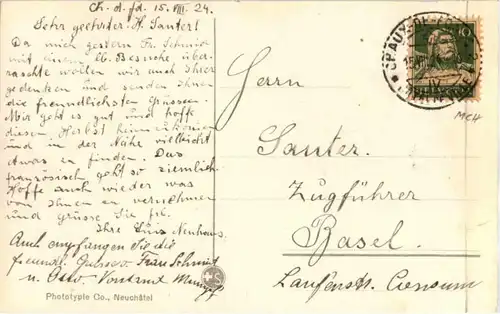 Ch. d. fd. 15. VIII. 24.
Sehr geehrter H. Santer!
Da mich gestern Fr. Schmid
mit einem lb. Besuche über-
raschte wollen wir auch Ihrer
gedenken und senden Ihnen
die freundlichsten Grüssen.
Mir geht es gut und hoffe
diesen Herbst heim zu können
und in der Nähe vielleicht
etwas zu finden. Das
französisch geht so ziemlich.
Hoffe auch wieder was
von Ihnen zu vernehmen
und grüsse Sie frl.
Ihre Luis Neuhaus.
Auch empfangen Sie die
freundl. Grüsse v. Frau Schmid
u. Otto
Phototypie Co., Neuchâtel
CHAUX-DE-FONDS
10
MCH
Herrn
Santer.
Zugführer
Basel.
Laufenstr. Consum